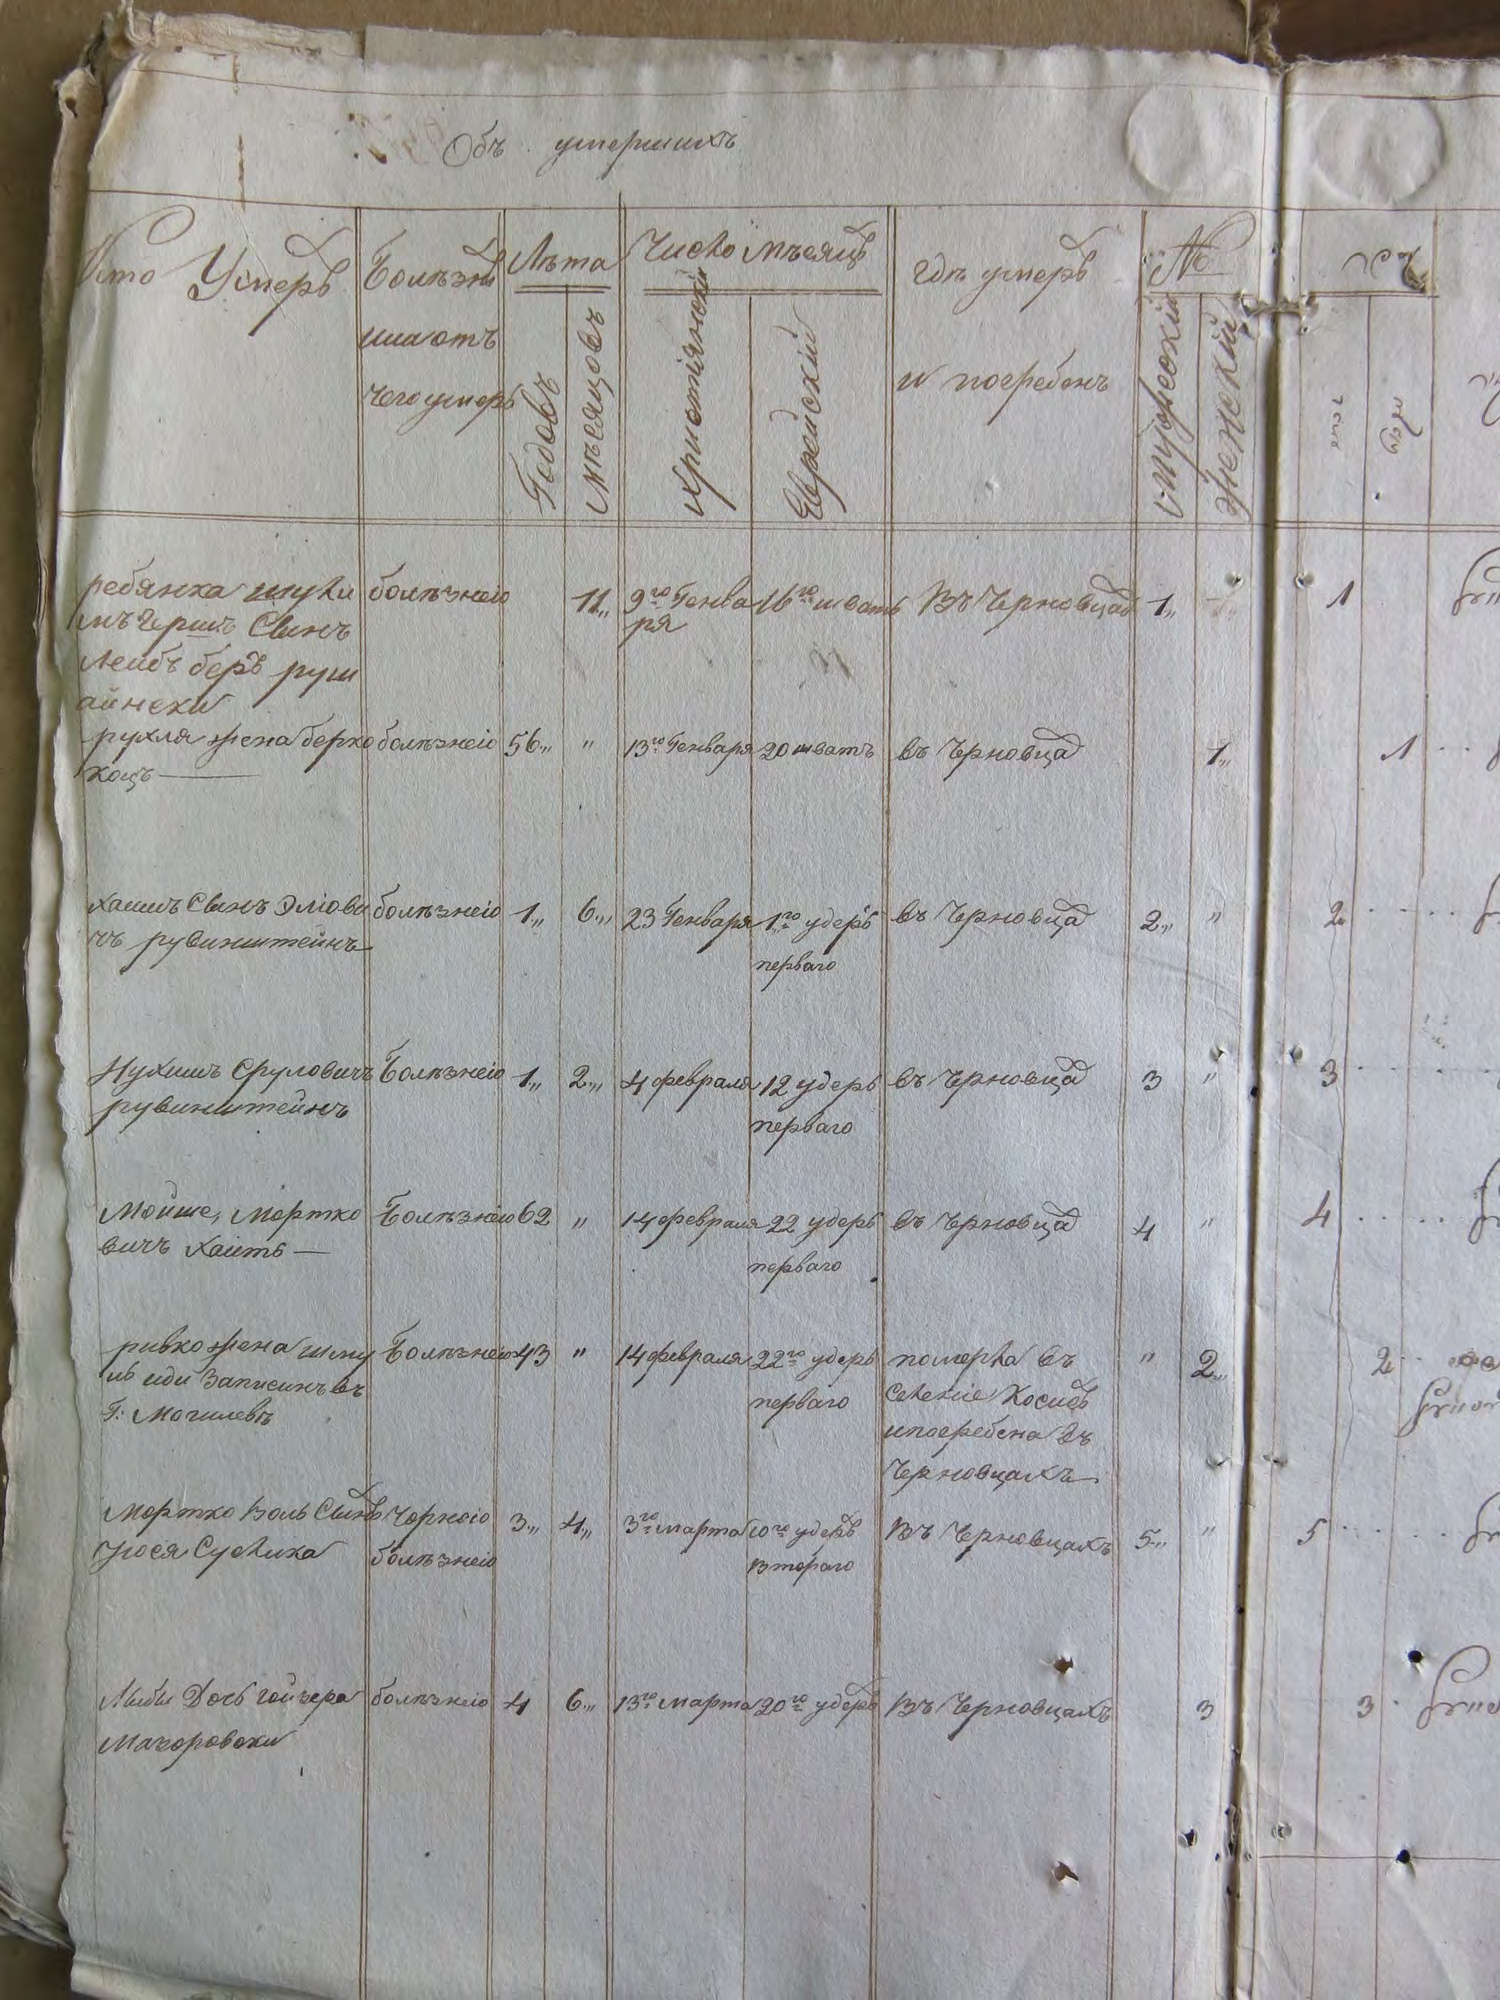 Объ умершихъ
Кто Умеръ
Болѣзнь
или отъ
чего умеръ
Лѣта
Годовъ
Мѣсяцовъ
Число Мѣсяцъ
Христіянскій
Еврейскій
гдѣ умеръ
и погребенъ
№
Мужескій
Женскій
ребянка
мъ Гершъ Сынъ
Леибъ беръ руш
айнски
болѣзнею
11
9го Генва
ря
16го шватъ
Въ Черновцах
1
1
рухля жена берко
коцъ
болѣзнею
56
"
13го Генваря
20 шватъ
въ Черновцах
1
1
хаимъ Сынъ Эліови
чъ рувинштейнъ
болѣзнею
1
6
23 Генваря
1го удеръ
перваго
въ Черновцах
2
"
2
Нухимъ Сруловичъ
рувинштейнъ
Болѣзнею
1
2
4 февраля
12 удеръ
перваго
въ Черновцах
3
"
3
Мойше, Мортко
вичъ Хаитъ
Болѣзнею
62
"
14 февраля
22 удеръ
перваго
въ Черновцах
4
"
4
ривко жена шму
ль иди Записинъ въ
Г: Могилевѣ
Болѣзнею
43
"
14 февраля
22го удеръ
перваго
померла въ
Селеніе Косиовъ
ипогребена въ
Черновцахъ
"
2
2
Мортко Воль Сынъ
Иося Суслика
Чорною
болѣзнею
3
4
3го марта
10го удеръ
Втораго
Въ Черновцахъ
5
"
5
Дочь
Мачоровски
болѣзнею
4
6
13го марта
20го удеръ
Въ Черновцахъ
3
3